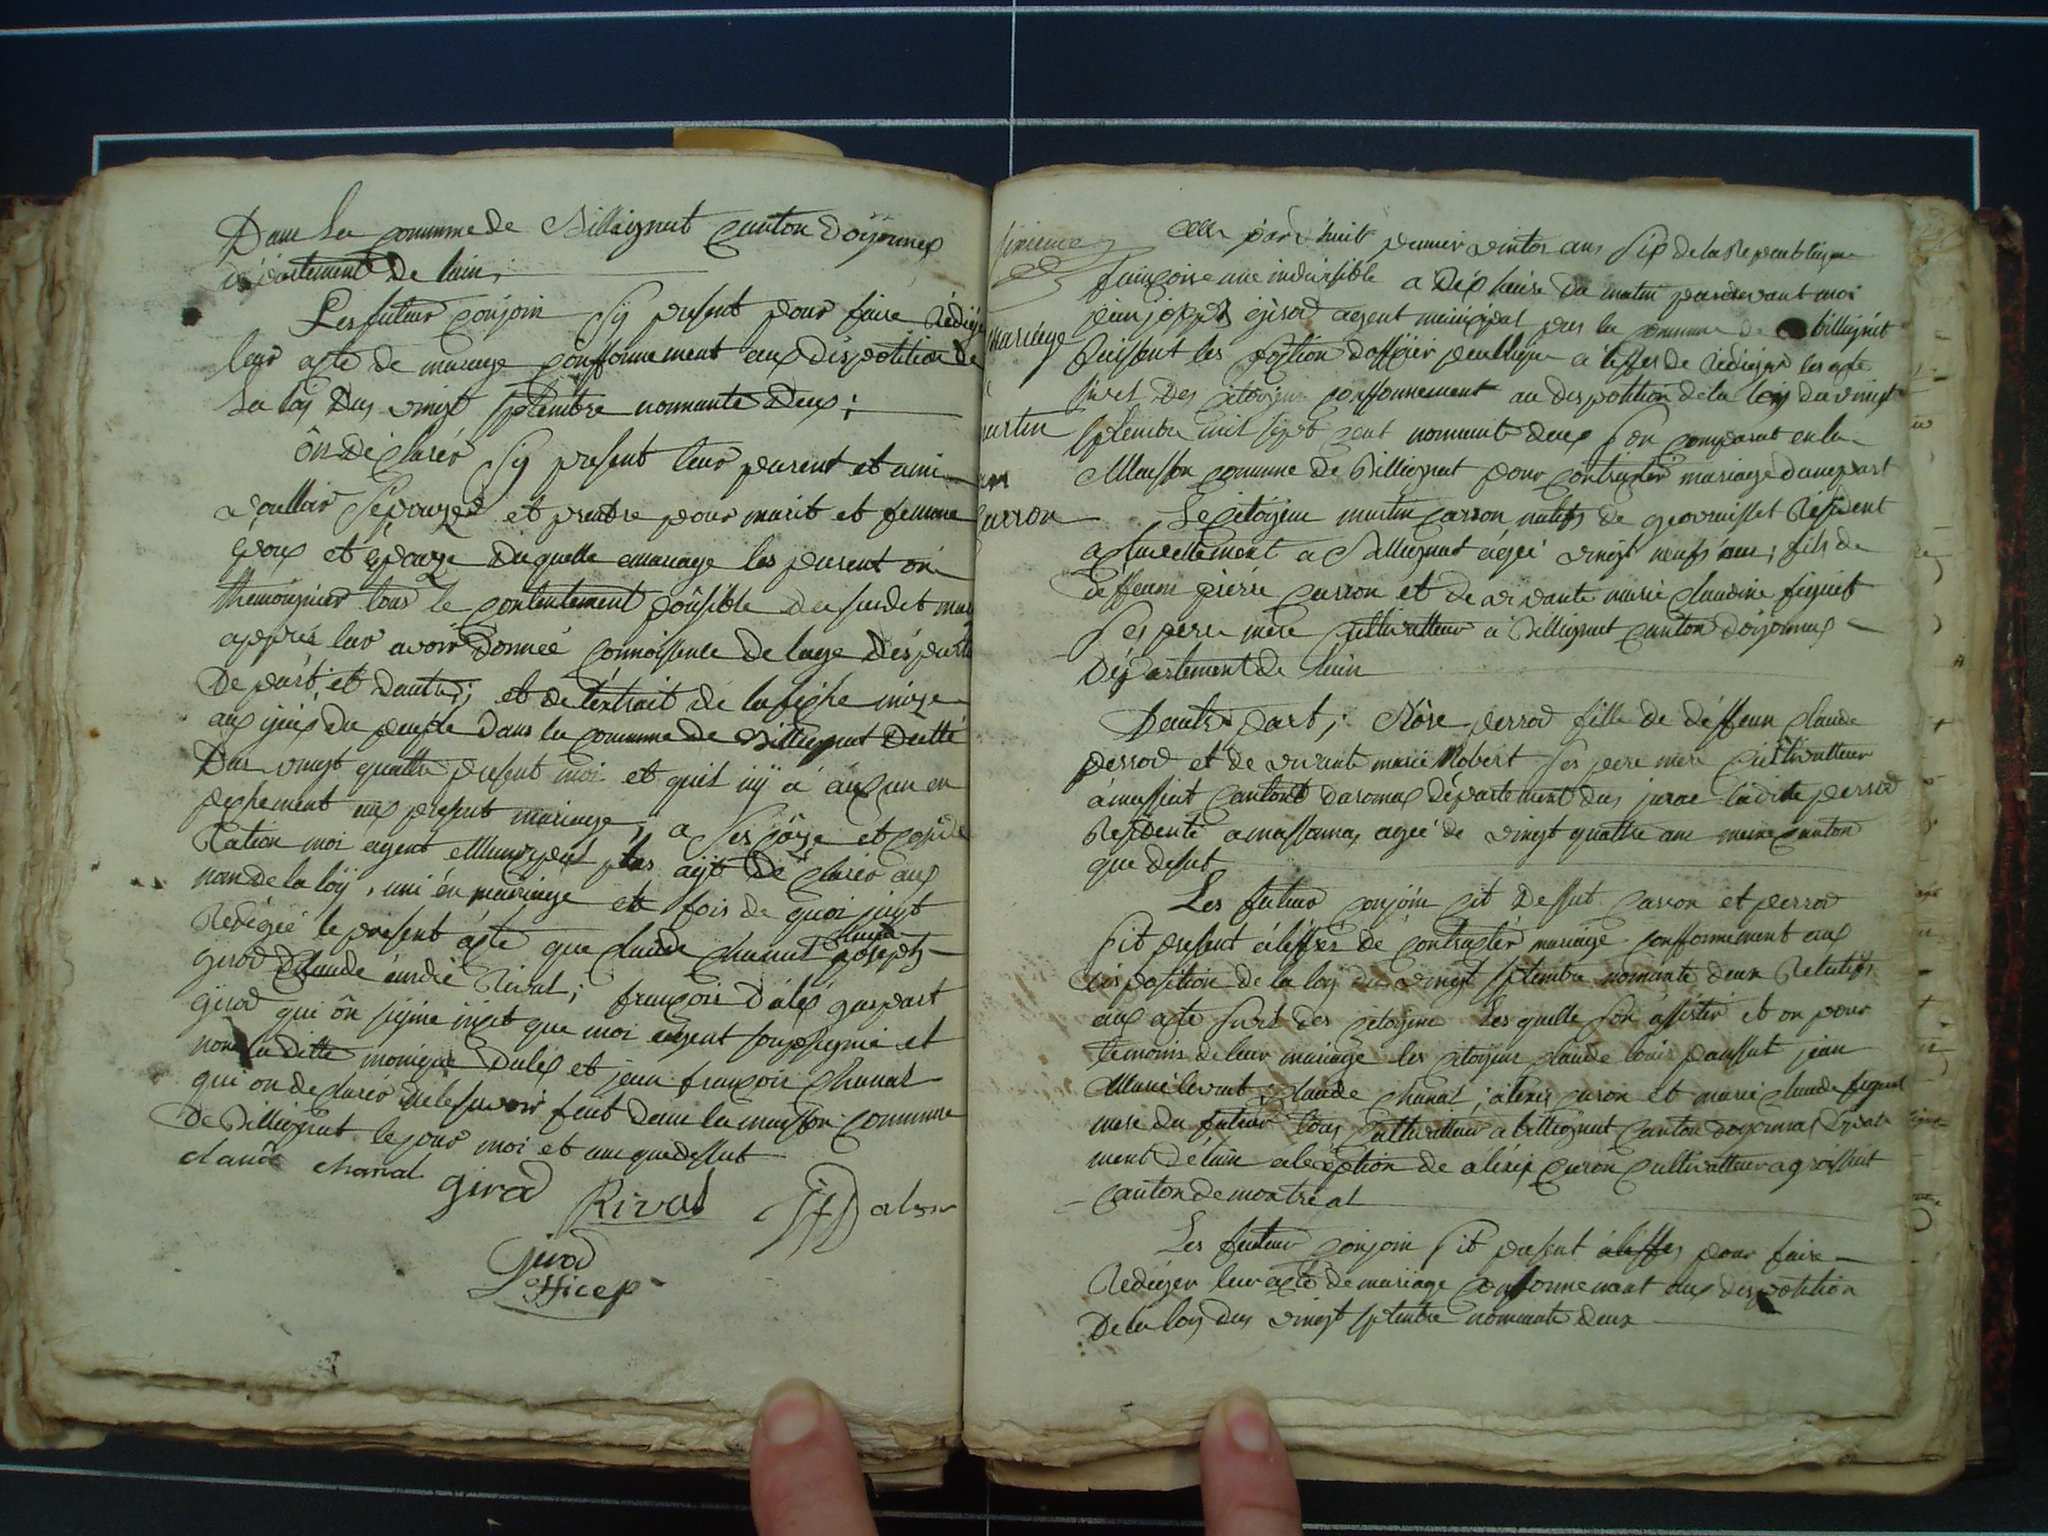 Dans la commune de Billiognat canton doÿonnax
département de lain,
Les futeur conjoin Sÿ present pour faire Rédiger
leur acte de mariage confformement aux dispotition de
La loÿ Dus vingt septembre nonnante Deux;
ôn déclarér Sÿ present leur parent et ami
voulloir Sépouzer et prentre pour marit et femme
époux et épouze duquelle mariage les parent ôn
themoignier tous le contentement pôssible du susdit mar
apprés leur avoir donneé connoissence de lage des partie
De part et dautre; et de lextrait de lafiche mize
aux yieux du peuple dans la commune de Billiognat Datté
Dus vingt quattre présent moi et quil nÿ a auqun en
pechement aux present mariage; a Ses côze et côside
ration moi agent Municipal les aÿt déclarér aux
nom de la loÿ, uni én mariage et fois de quoi jaÿt
Redigée le present acte que claude chanal joseph
girod Claude andré Rival; françois dalex gaspart
girod qui ôn signié insit que moi agent soussignié et
non la ditte monique Dalex et jean françois chanal
qui on declarér nele savoir fait dans la maison commune
de Billiognat le jour moi et ane quedessut
claude chanal girod Rival jf Dalex
girod
officep
mariage
martin
carron
cejour Huit premier ventos ans Six de la Republique
françoise une indivisible a dix heure du matin pardevant moi
jean joseph girod agent municipal pour la commune de billiognat
faissant les fontion dofficier peublique a leffet de Rédiger les acte
sivil Des citoÿens confformement au dispotition de la loÿ du vingt
septembre mil sept cent nonnante deux Son comparut en la
Maison commune de Billiognat pour contracter mariage dunepart
Le citoÿen martin carron natifs de geovraisset Résident
actuellement a Billiognat agéé vingt neufs ans, fils de
déffeunt pierre carron et de vivante marie claudine fignet
Ses pere mere cultivatteur a Billiognat canton doÿonnax
département de lain
Dautre part; Rôse perrod fille de déffeunt claude
perrod et de vivante marie Robert Ses pere mere cultivatteur
a massiat canton daromax département dus jurae ladite perrod
Résidente a massiat, ageé de vingt quattre ans meme canton
que desut
Les futeur conjoin cit dessut carron et perrod
Sit present a leffet de contracter mariage confformement aux
disposition de la loÿ du vingt septembre nonnante deux Relatifs
aux acte sivil des citoÿens Lesquelle Son assister et on pour
temoins de leur mariage les citoÿens claude louis paussut jean
Marie levrat; claude chanal; alexis caron et marie claude fignet
mere du futeur tous cultivatteur a billiognat canton doÿonnax départe
ment délain alexéption de aléxis caron cultivatteur a groissiat
canton de montréal
Les futeur conjoin Sit present a leffet pour faire
Rediger leur acte de mariage confformement aux dispotition
De la loÿ dus vingt septembre nonnante deux